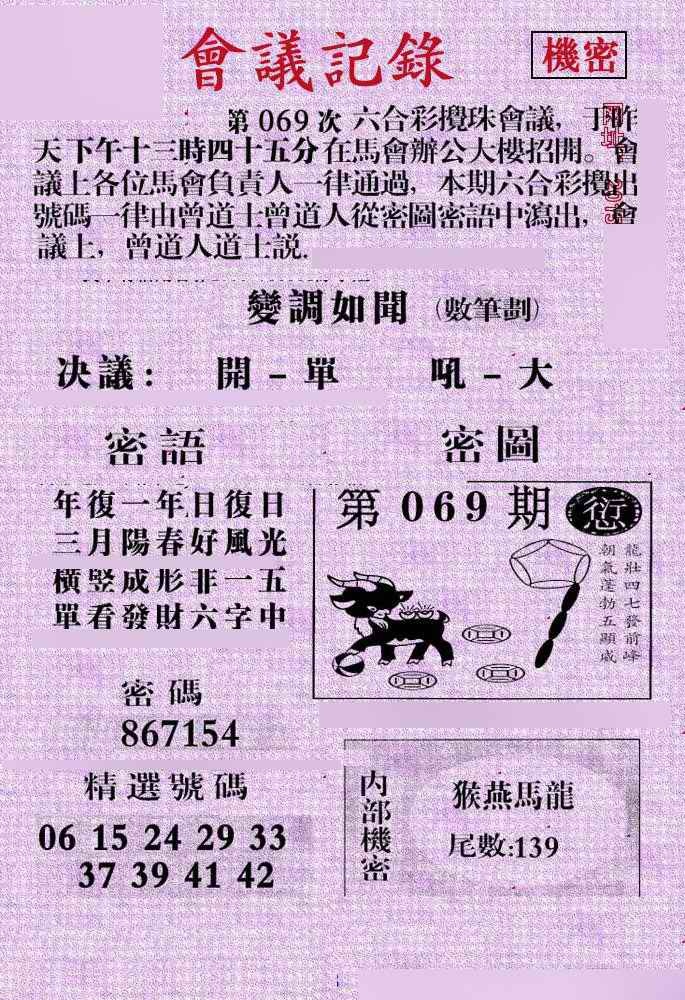 會議記錄
機密
第 069 次 六合彩攪珠會議，于昨
天下午十三時四十五分在馬會辦公大樓招開。會
議上各位馬會負責人一律通過，本期六合彩攪出
號碼一律由曾道士曾道人從密圖密語中瀉出，會
議上，曾道人道士説.
變調如聞（數筆劃）
决議： 開－單 吼－大
密語
年復一年日復日
三月陽春好風光
橫竪成形非一五
單看發財六字中
密圖
第 069 期
龍壯四七發前峰
朝氣蓬勃五顯威
密碼
867154
精選號碼
06 15 24 29 33
37 39 41 42
内部機密
猴燕馬龍
尾數:139